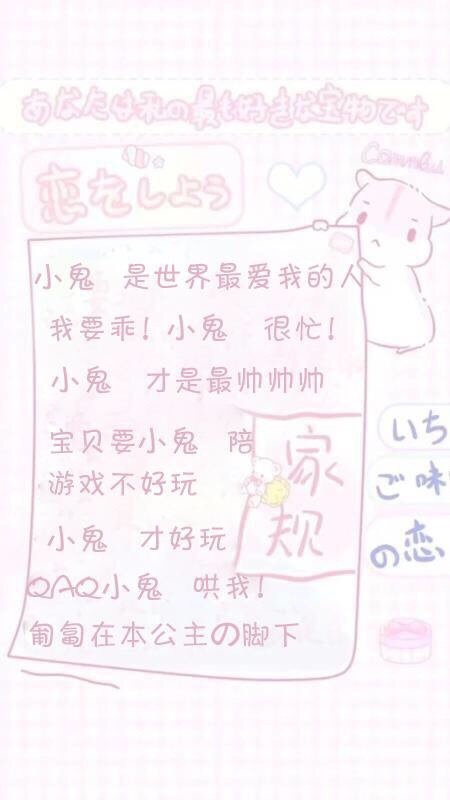 あなたは私の最も好きな宝物です
恋をしよう
小鬼 是世界最爱我的人
我要乖！小鬼 很忙！
小鬼 才是最帅帅帅
宝贝要小鬼 陪
游戏不好玩
小鬼 才好玩
QAQ小鬼 哄我！
匍匐在本公主の脚下
家
规
いち
ご味
の恋